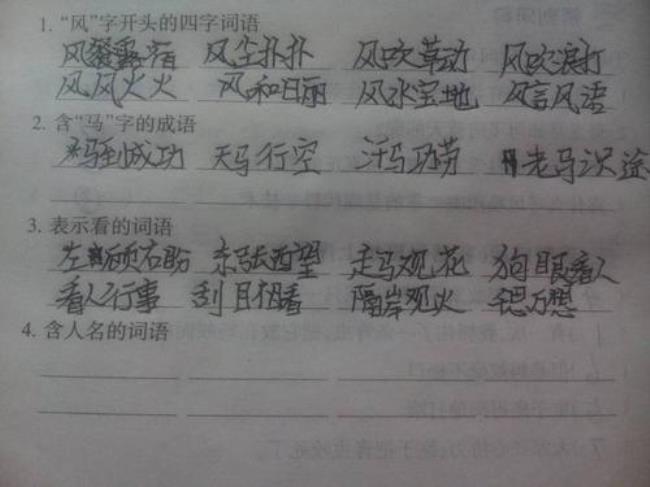 1. “风”字开头的四字词语
风餐露宿 风尘扑扑 风吹草动 风吹浪打
风风火火 风和日丽 风水宝地 风言风语
2. 含“马”字的成语
马到成功 天马行空 汗马功劳 老马识途
3. 表示看的词语
左顾右盼 东张西望 走马观花 狗眼看人
看人行事 刮目相看 隔岸观火
4. 含人名的词语